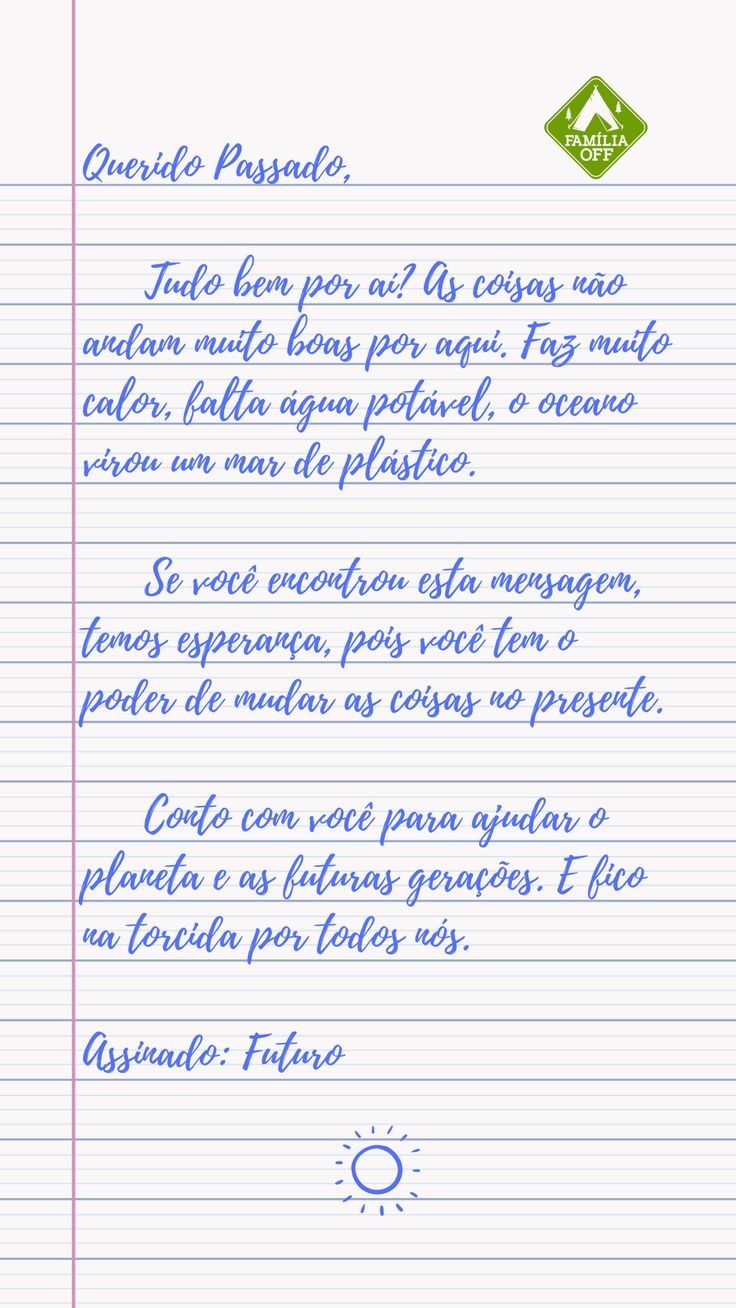 FAMÍLIA
OFF
Querido Passado,
Tudo bem por aí? As coisas não
andam muito boas por aqui. Faz muito
calor, falta água potável, o oceano
virou um mar de plástico.
Se você encontrou esta mensagem,
temos esperança, pois você tem o
poder de mudar as coisas no presente.
Conto com você para ajudar o
planeta e as futuras gerações. E fico
na torcida por todos nós.
Assinado: Futuro